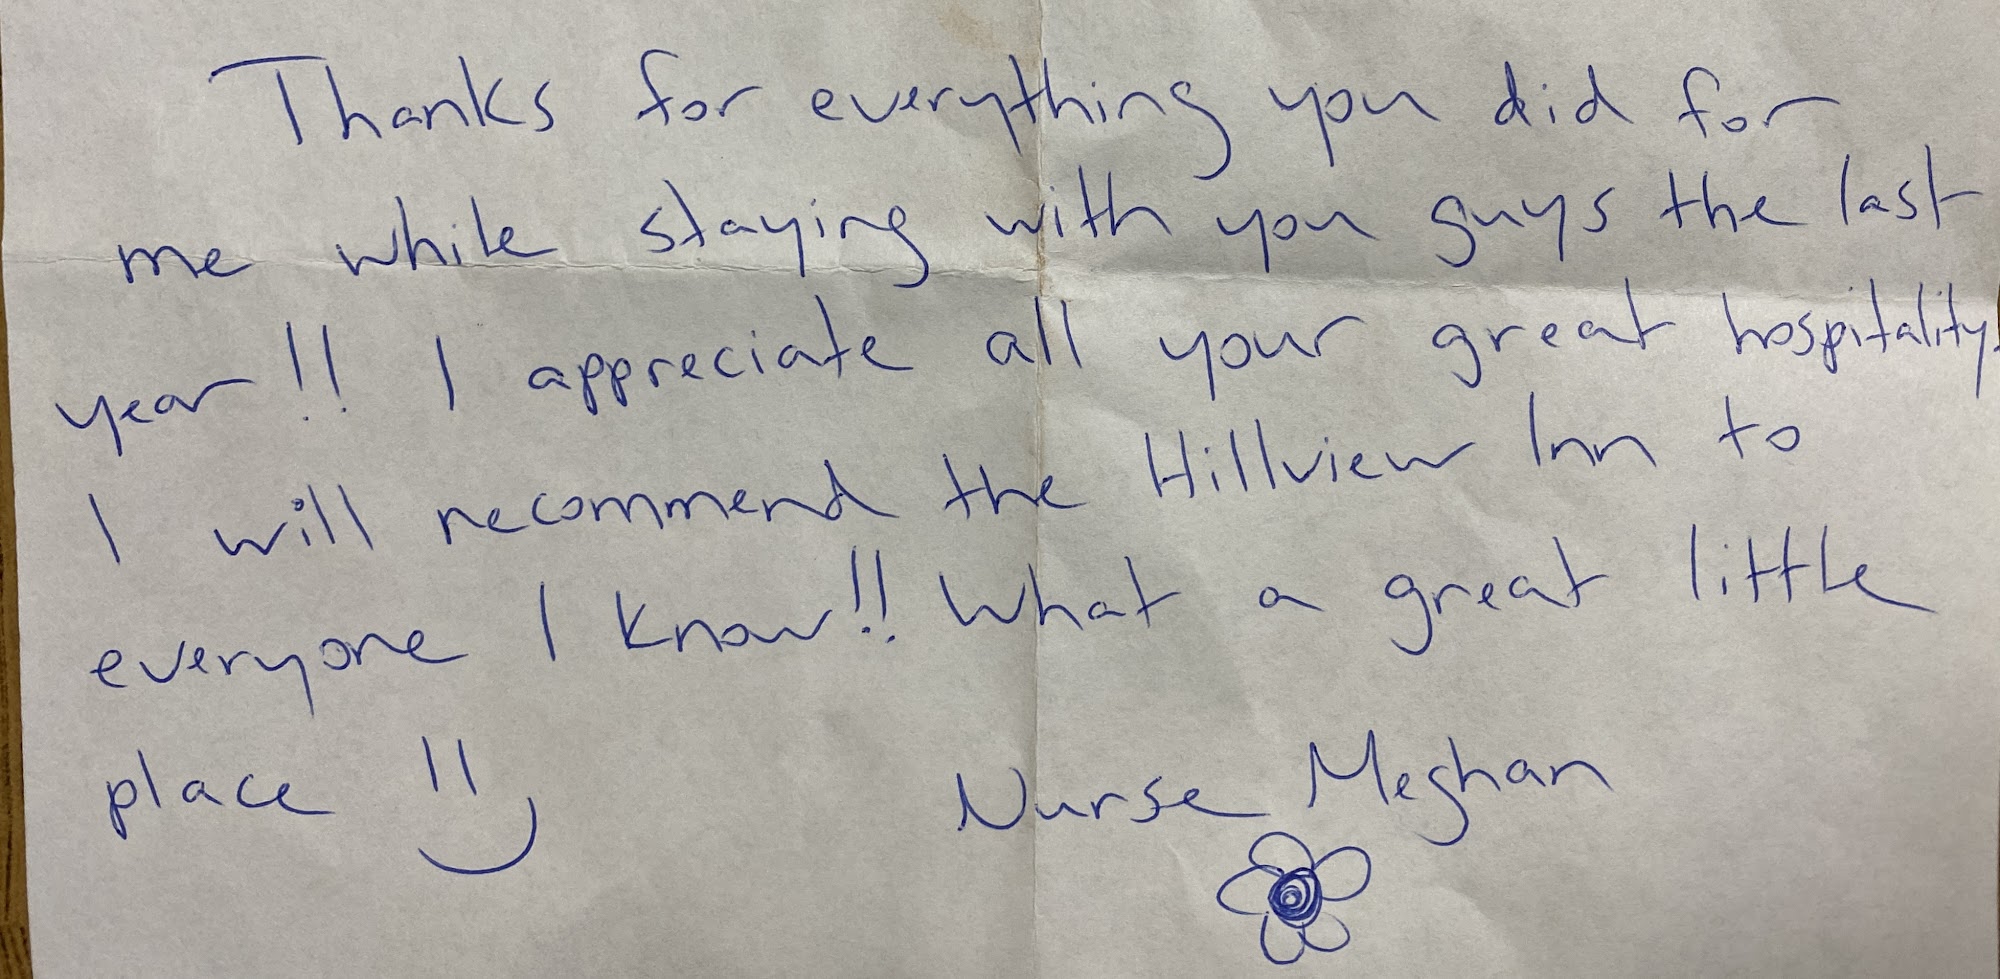 Thanks for everything you did for
me while staying with you guys the last
year!! I appreciate all your great hospitality.
I will recommend the Hillview Inn to
everyone I know!! What a great little
place !!
Nurse Meghan